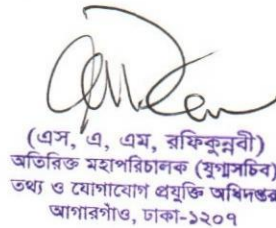 (এস, এ, এম, রফিকুন্নবী)
অতিরিক্ত মহাপরিচালক (যুগ্মসচিব)
তথ্য ও যোগাযোগ প্রযুক্তি অধিদপ্তর
আগারগাঁও, ঢাকা-১২০৭